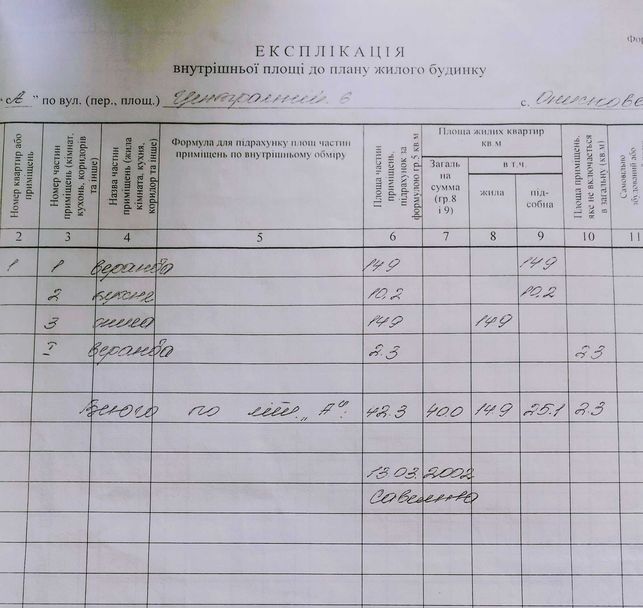 Фор
ЕКСПЛІКАЦІЯ
внутрішньої площі до плану жилого будинку
"А" по вул. (пер., площ.) Центральній 6 с.
Номер квартир або приміщень
Номер частин приміщень (кімнат, кухонь, коридорів та інше)
Назва частин приміщень (жила кімната, кухня, коридор та інше)
Формула для підрахунку площ частин приміщень по внутрішньому обміру
Площа частин приміщень, підрахунок за формулою гр.5 кв м
Площа жилих квартир кв.м
Загаль на сумма (гр.8 і 9)
в т.ч.
жила
під-собна
Площа приміщень, яке не включається в загальну (кв.м)
Самовільно збудований або
2 3 4 5 6 7 8 9 10 11
1 1 веранда 14.9 14.9
2 кухня 10.2 10.2
3 жила 14.9 14.9
I веранда 2.3 2.3
Всього по літ. "А": 42.3 40.0 14.9 25.1 2.3
13.03.2002